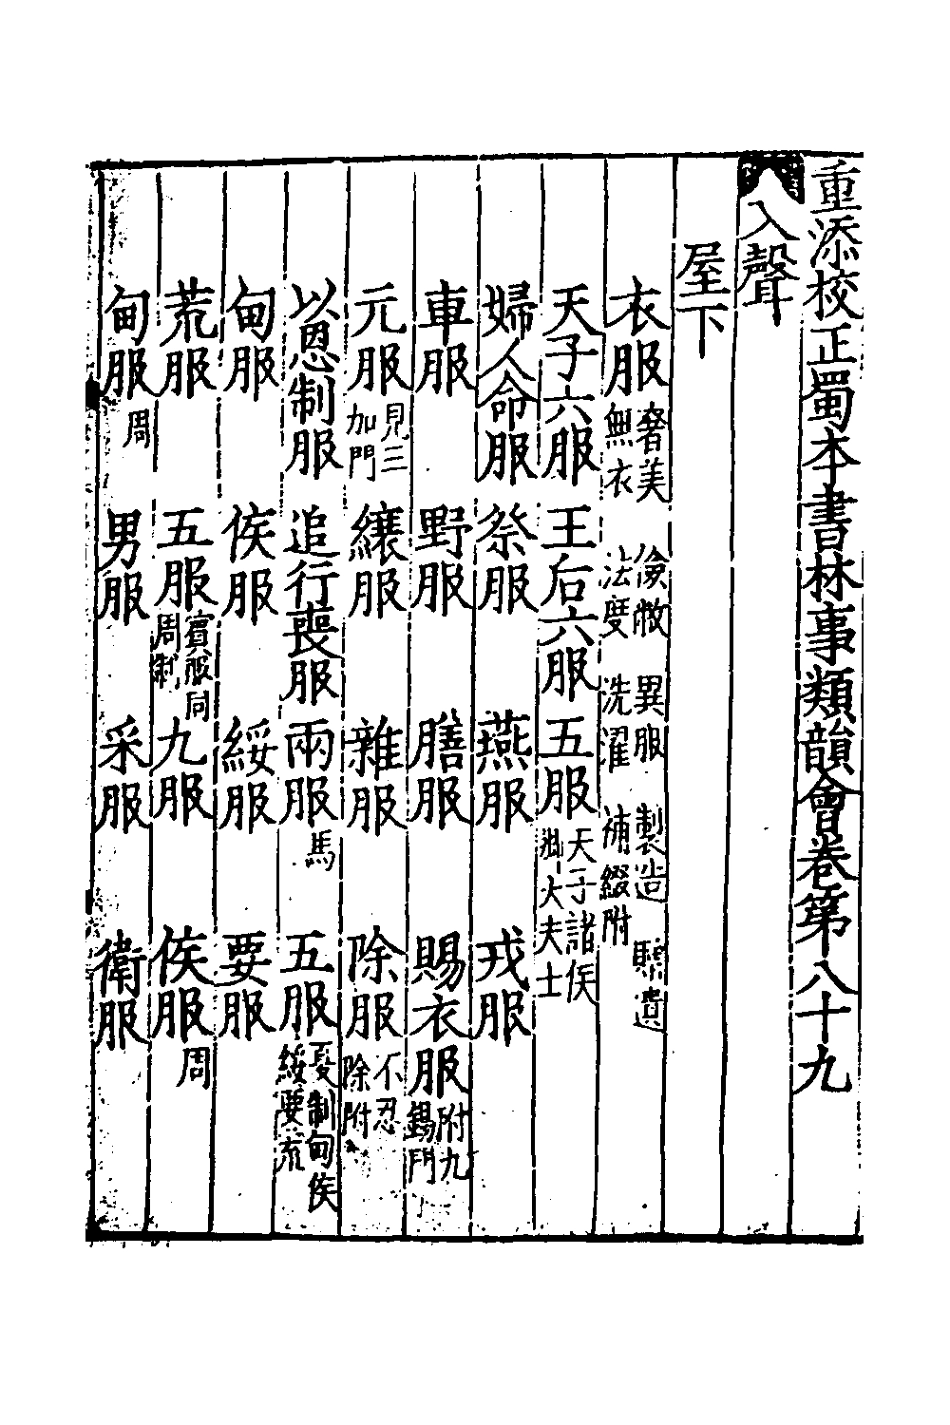 重添校正蜀本書林事類韻會卷第八十九
入聲
屋下
衣服 奢美 無衣 儉敝 法度 異服 洗濯 製造 補綴附 賜遺
天子六服 王后六服 五服 天子諸侯卿大夫士
婦人命服 祭服 燕服 戎服
車服 野服 膳服 賜衣服 附九錫門
元服 見三加門 纕服 雜服 除服 不忍除附
以恩制服 追行喪服 兩服 馬 五服 夏制甸侯綏要荒
甸服 侯服 綏服 要服
荒服 五服 賓服同周制 九服 侯服 周
甸服 周 男服 采服 衛服